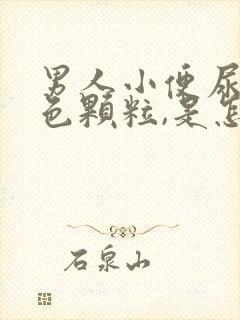 男人小便尿
色颗粒,是怎
石泉山